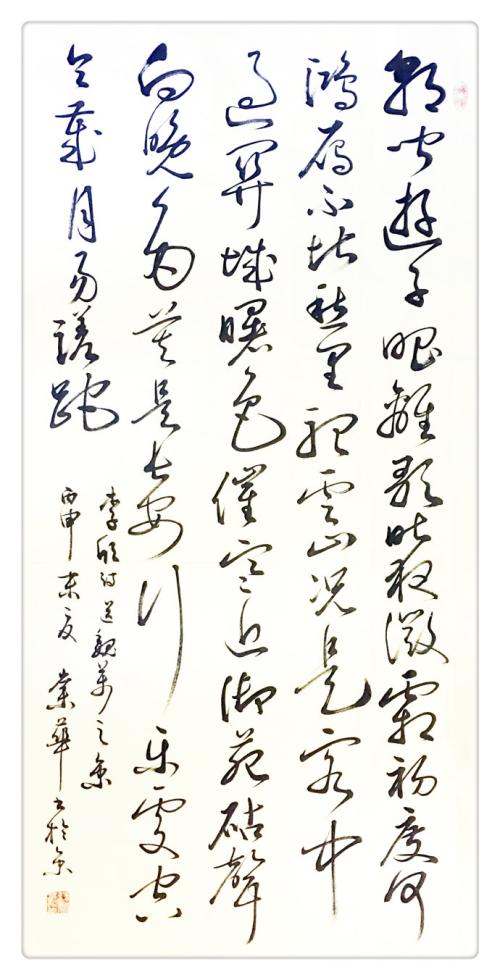 朝聞遊子唱離歌昨夜微霜初度河
鴻雁不堪愁里聽雲山况是客中
過關城曙色催寒近御苑砧聲
向晚多莫是長安行樂處空
令歲月易蹉跎
李颀詩送魏萬之京
丙申夏華書於京